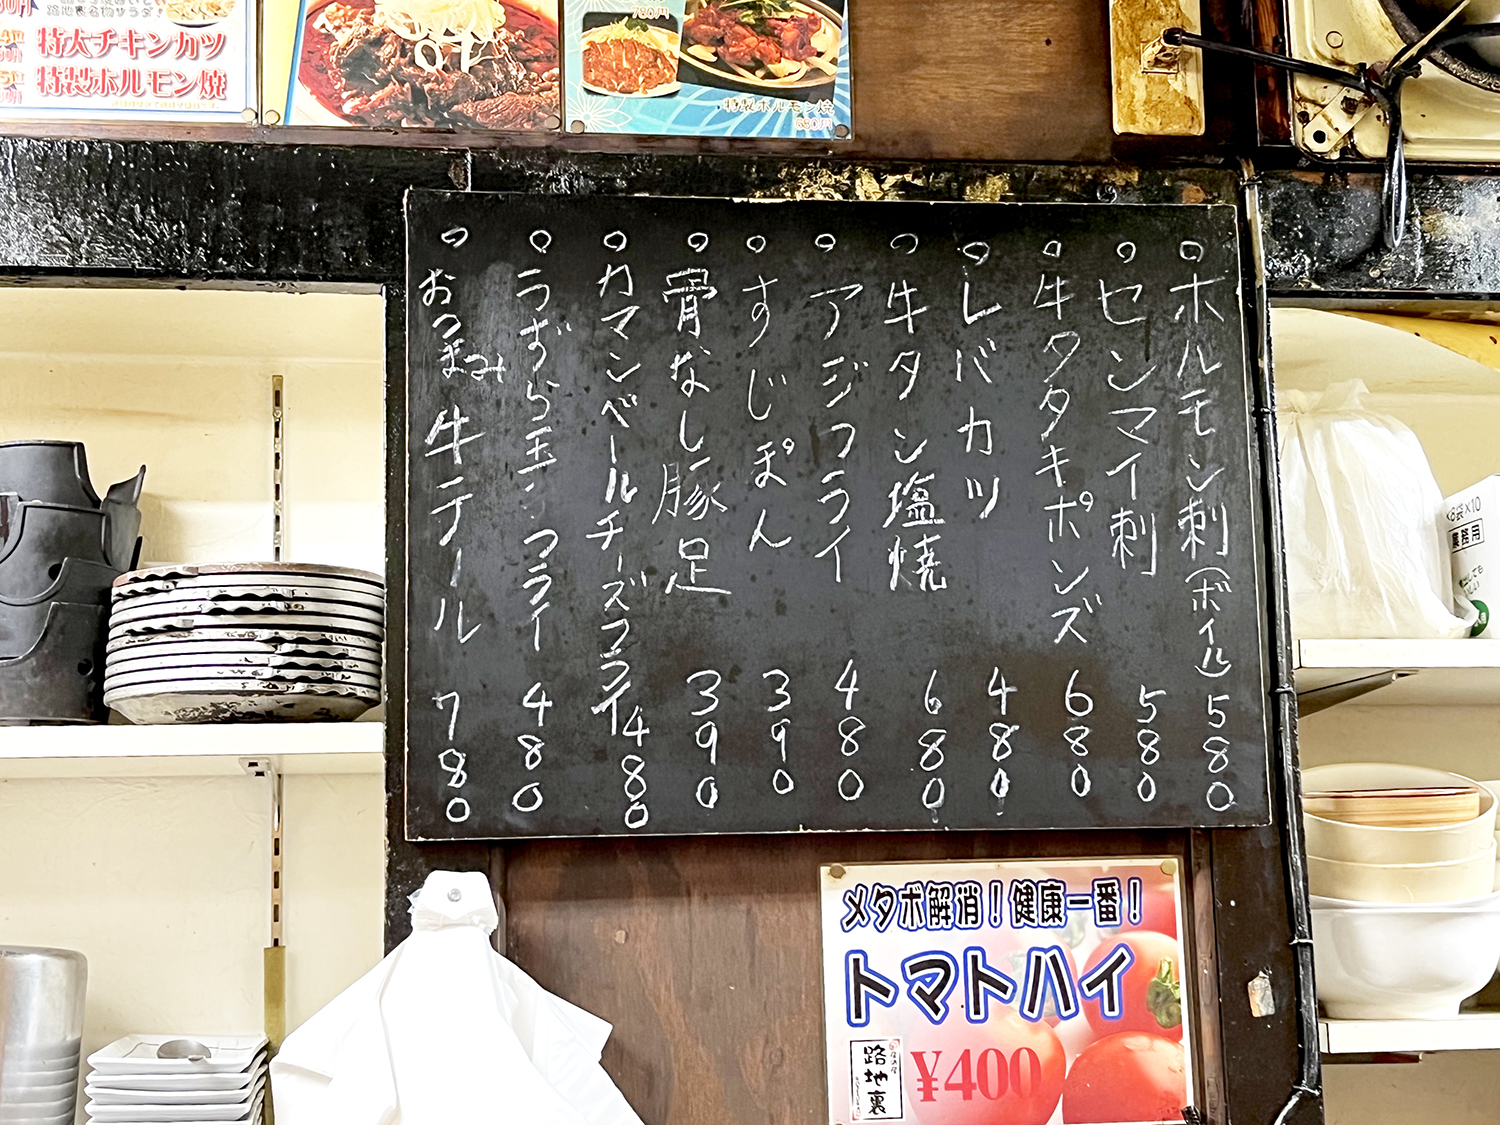 特大チキンカツ
特製ホルモン焼
780円
特製ホルモン焼
680円
ホルモン刺(ボイル) 580
センマイ刺 580
牛タタキポンズ 680
レバカツ 480
牛タン塩焼 680
アジフライ 480
すじぽん 390
骨なし豚足 390
カマンベールチーズフライ 480
うずら玉フライ 480
おつまみ牛テール 780
×10
業務用
メタボ解消!健康一番!
トマトハイ
路地裏
¥400